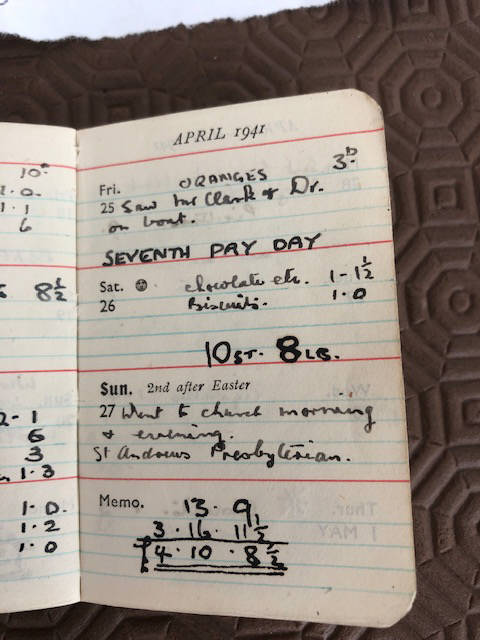 10ᴰ
1.0.
1.1
6
8½
2-1
6
3
1.3
1.0.
1.2
1.0
APRIL 1941
Fri. ORANGES 3ᴰ
25 Saw Mr Clark & Dr.
on boat.
SEVENTH PAY DAY
Sat. chocolate etc. 1-1½
26 Biscuits. 1.0
10 ST. 8 LB.
Sun. 2nd after Easter
27 Went to church morning
& evening.
St Andrews Presbyterian.
Memo. 13. 9
3.16.11½
4.10.8½